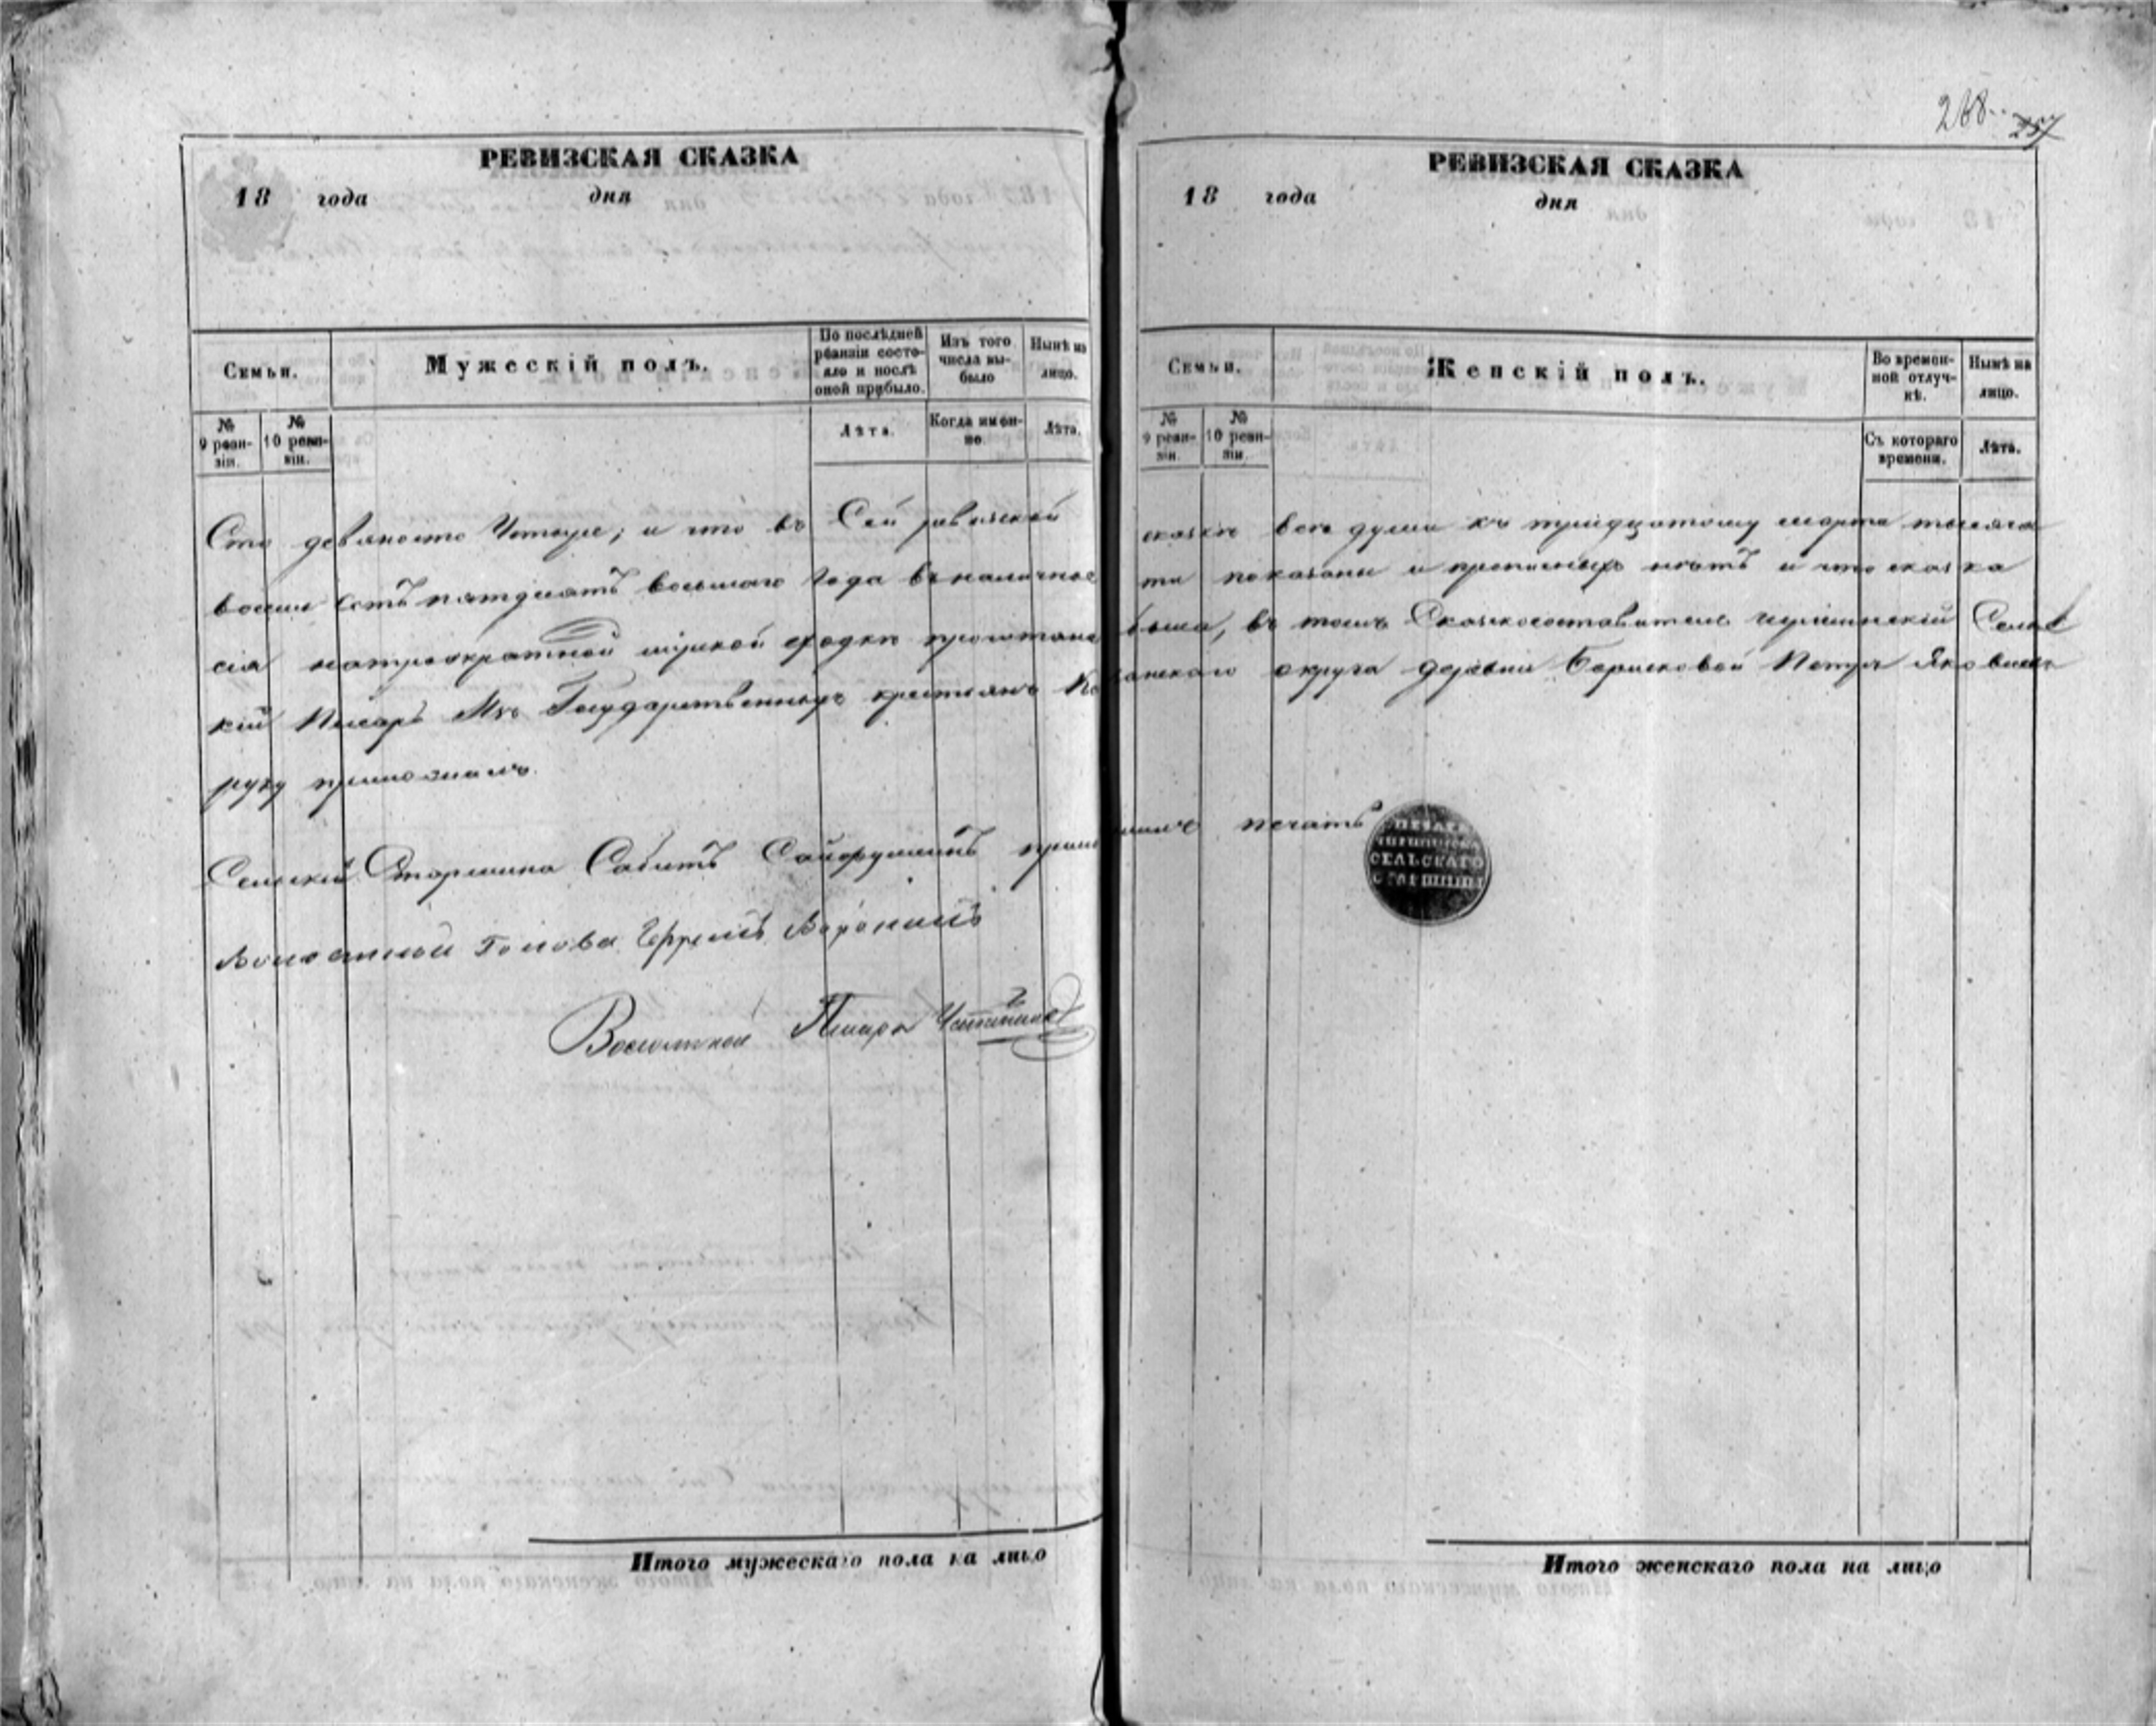 268 257
РЕВИЗСКАЯ СКАЗКА
18 года дня
Семьи.
Мужескій полъ.
По послѣдней ревизіи состояло и послѣ оной прибыло.
Изъ того числа выбыло
Нынѣ на лицо.
№ 9 ревизіи.
№ 10 ревизіи.
Лѣта.
Когда именно.
Лѣта.
РЕВИЗСКАЯ СКАЗКА
18 года дня
Семьи.
Женскій полъ.
Во временной отлучкѣ.
Нынѣ на лицо.
№ 9 ревизіи.
№ 10 ревизіи.
Съ котораго времени.
Лѣта.
Сто девяносто Четыре; и что въ Сей ревизской сказкѣ всѣ души къ тридцатому марта тысяча
восемь сотъ пятдесятъ восьмаго Года въ наличности показаны и прописныхъ нѣтъ и что сказка
сія на троекратной мірской сходкѣ прочитана была, въ томъ Сказкосоставитель Сельс
кій Писарь Изъ Государственныхъ крестьянъ Казанскаго округа деревни Борисковой Петръ Яковлевъ
руку приложилъ.
Сельскій Старшина Сабитъ приложилъ печать
ПЕЧАТЬ
СЕЛЬСКАГО
СТАРШИНЫ
Волостной Голова Ефремъ Воронинъ
Волостной Писарь
Итого мужескаго пола на лицо
Итого женскаго пола на лицо